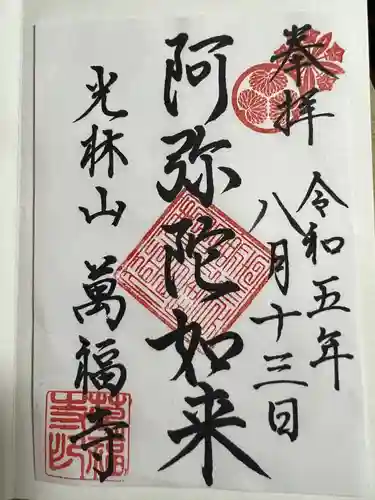 奉拝
令和五年
八月十三日
阿弥陀如来
光林山
萬福寺